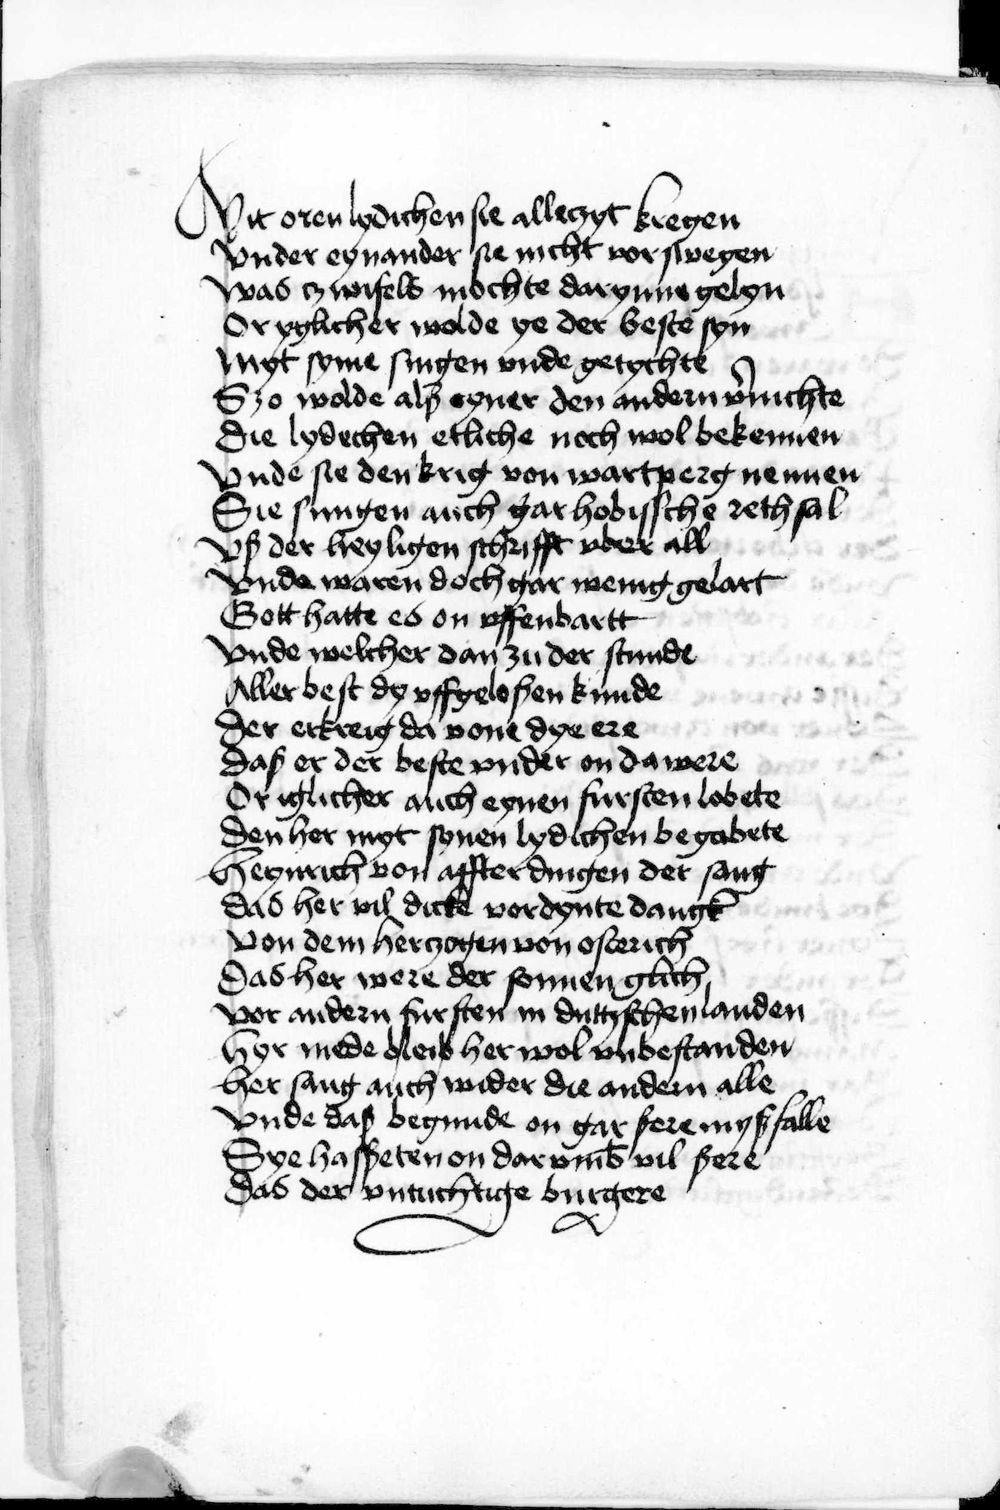 Mit oren lydichen sie alleczyt kregen
Vnder eynander sie nicht vorswegen
Was czwifels mochte darynne gelyn
Or yglicher wolde ye der beste syn
Myt syme singen vnde getychte
Szo wolde alß eyner den andern v̄nichte
Die lydechen etliche noch wol bekennen
Vnde sie den krig von wartperg nennen
Sie sungen auch gar hobissche rethsal
Vß der heyligen schrifft vber all
Vnde waren doch gar wenig gelart
Gott hatte es on vffenbartt
Vnde welcher dan zu der stunde
Aller best dy vffgeloßen kunde
Der erkreig da vone dye ere
Daß er der beste vnder on da were
Or iglicher auch eynen fursten lobete
Den her myt synen lydichen begabete
Heynrich von affterdingen der sang
Das her vil dicke vordynte dangk
Von dem herczogen von osterich
Das her were der sonnen glich
Vor andern fursten in duttzschen landen
Hyr mede bleib her wol vnbestanden
Her sang auch wider die andern alle
Vnde daß begunde on gar ßere myßfalle
Sye haßeten on darvmb vil ßere
Das der vntuchtige burgere